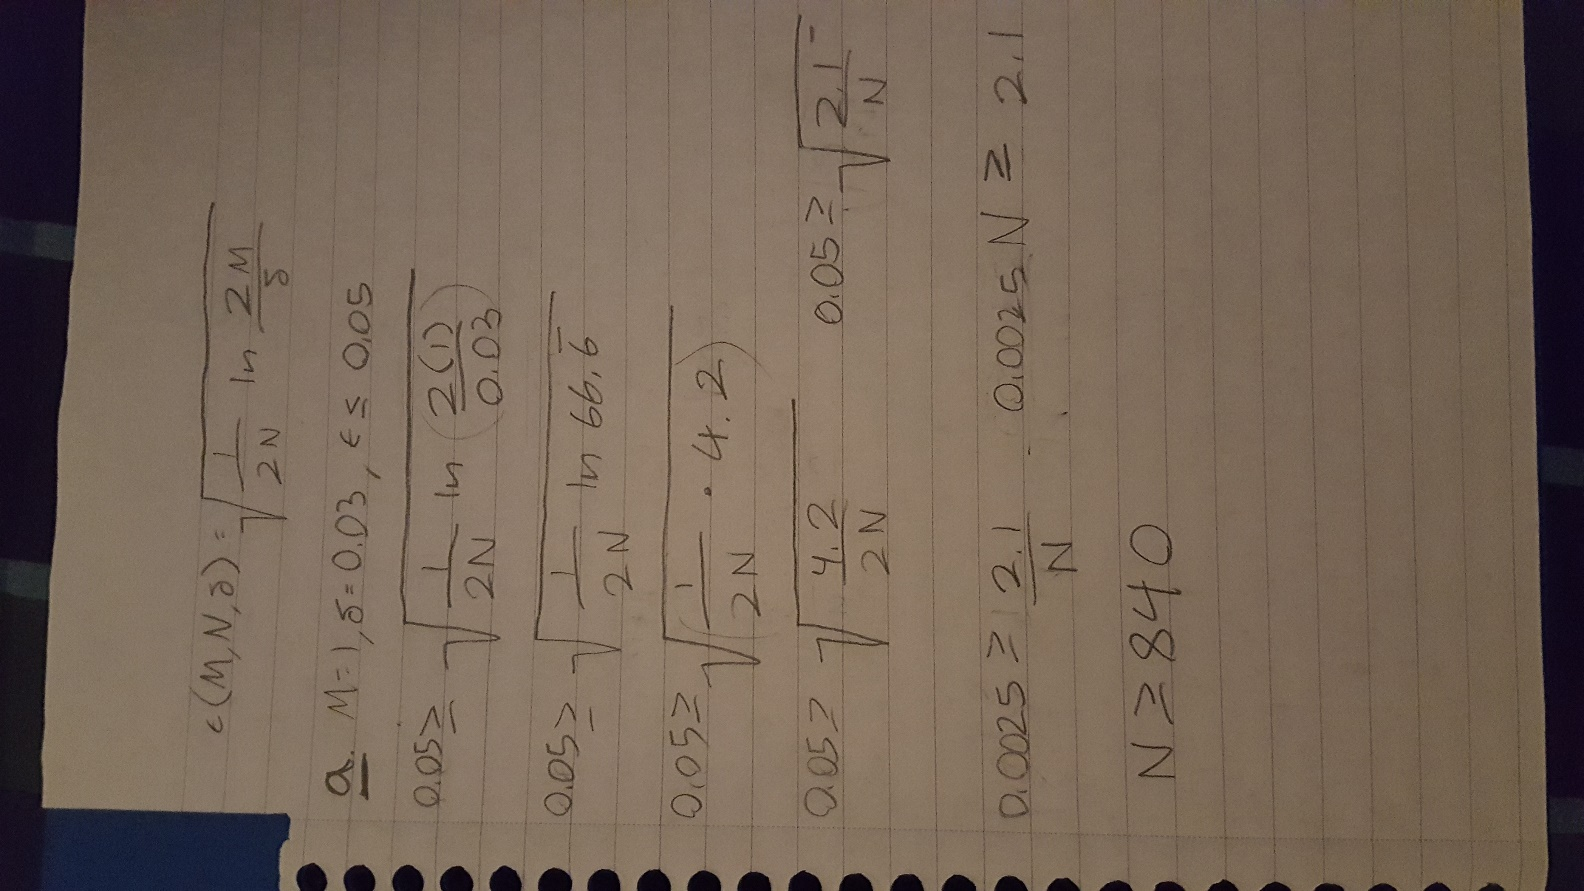 ϵ(M,N,δ) = √(1/2N ln 2M/δ)
a. M=1, δ=0.03, ϵ ≤ 0.05
0.05 ≥ √(1/2N ln (2(1)/0.03))
0.05 ≥ √(1/2N ln 66.6̅)
0.05 ≥ √((1/2N · 4.2))
0.05 ≥ √(4.2/2N) 0.05 ≥ √(2.1/N)
0.0025 ≥ 2.1/N 0.0025 N ≥ 2.1
N ≥ 840